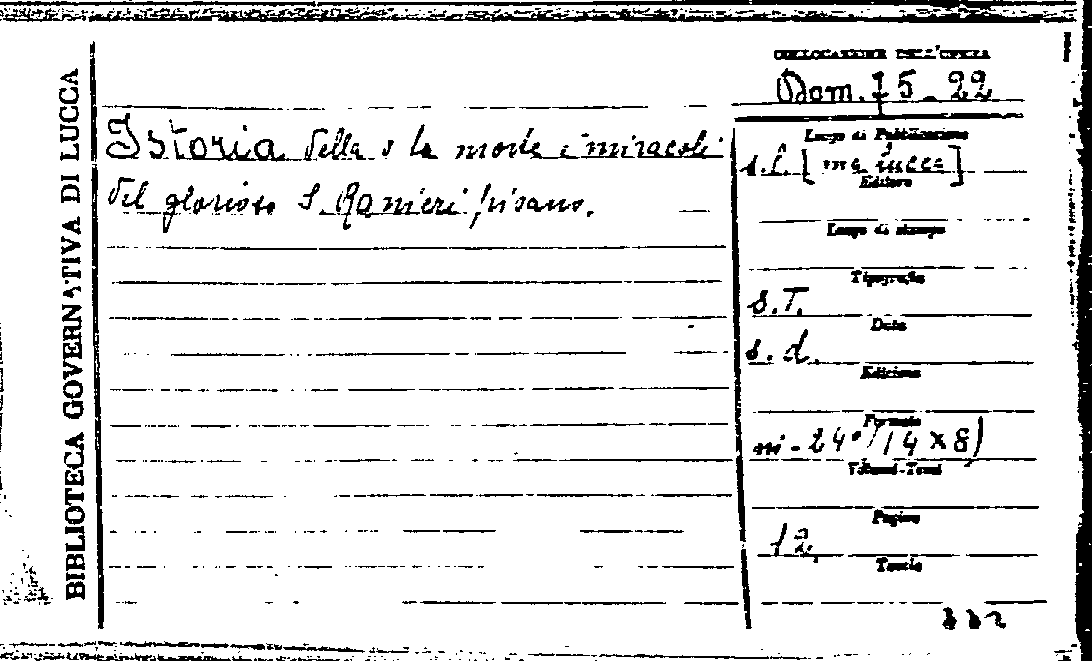 BIBLIOTECA GOVERNATIVA DI LUCCA
COLLOCAZIONE DELL'OPERA
Dom. 75-22
Istoria della la morte e miracoli
del glorioso S. Ranieri pisano.
Luogo di Pubblicazione
s.l. [ma Lucca]
Editore
Luogo di stampa
Tipografia
s.T.
Data
s.d.
Edizione
Formato
in-24° (14x8)
Volumi-Tomi
Pagine
12.
Tavole